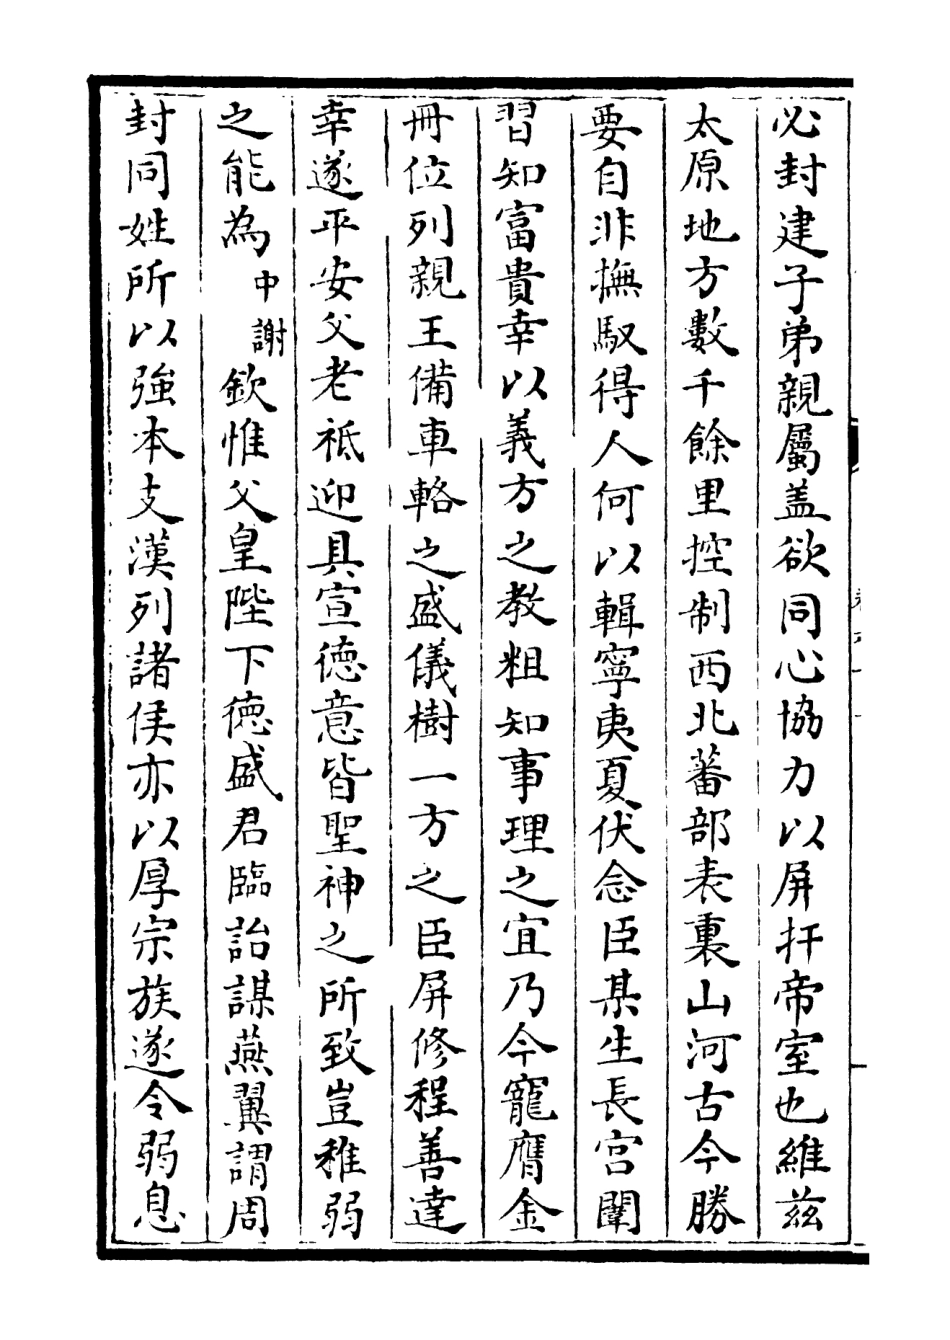 必封建子弟親屬盖欲同心協力以屏扞帝室也維兹
太原地方數千餘里控制西北蕃部表裏山河古今勝
要自非撫馭得人何以輯寧夷夏伏念臣某生長宫闈
習知富貴幸以義方之教粗知事理之宜乃今寵膺金
冊位列親王備車輅之盛儀樹一方之臣屏修程善達
幸遂平安父老祗迎具宣德意皆聖神之所致豈稚弱
之能為中謝欽惟父皇陛下德盛君臨詒謀燕翼謂周
封同姓所以強本支漢列諸侯亦以厚宗族遂令弱息